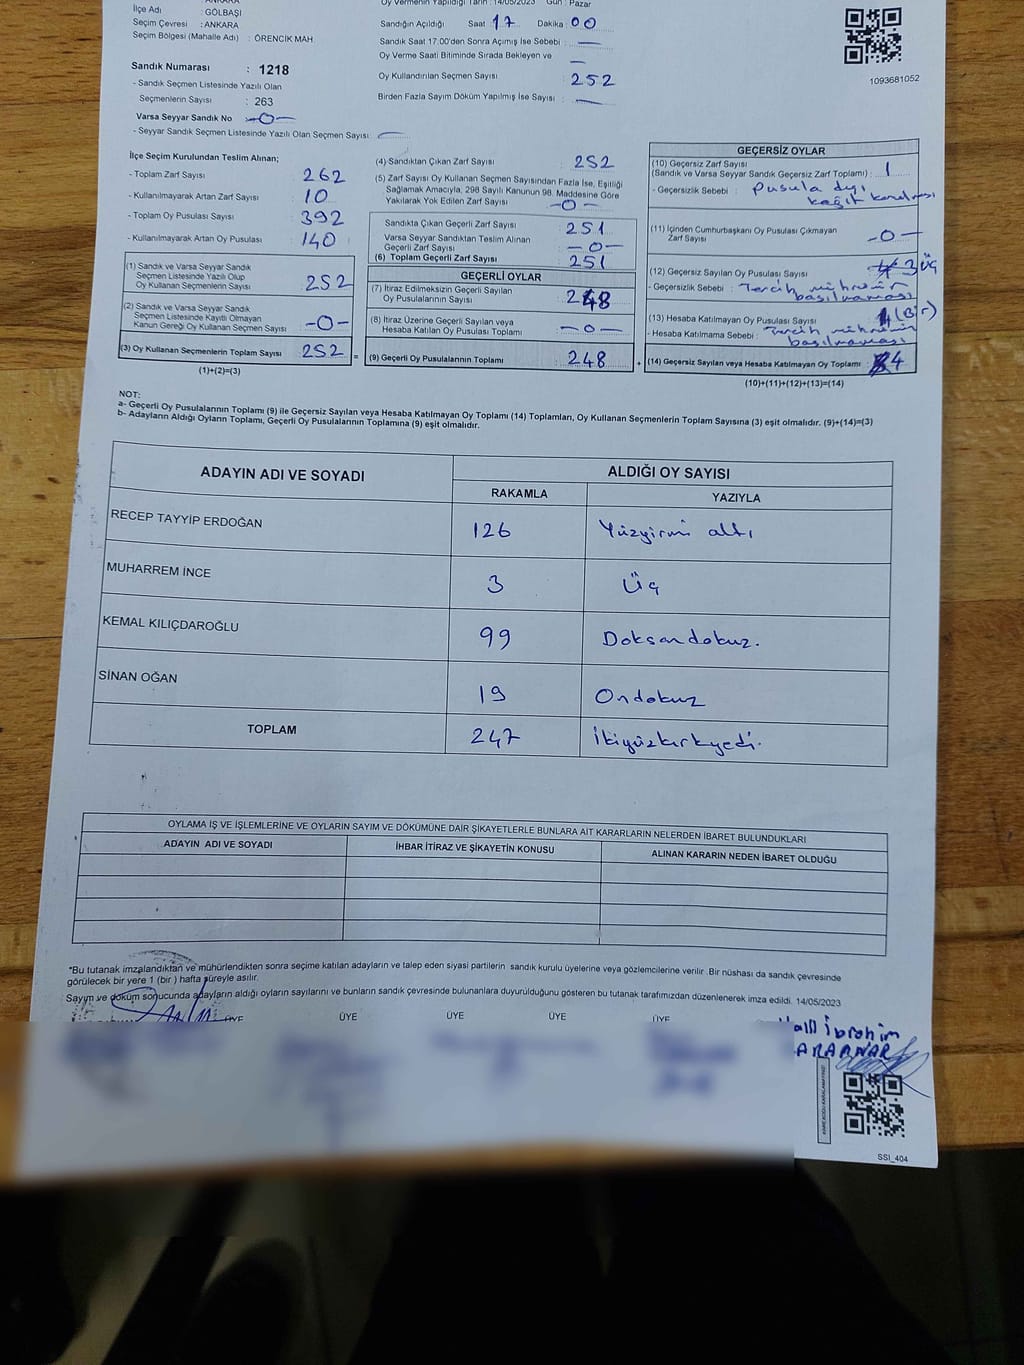 İlçe Adı : GÖLBAŞI
Seçim Çevresi : ANKARA
Seçim Bölgesi (Mahalle Adı) : ÖRENCİK MAH
Sandık Numarası : 1218
- Sandık Seçmen Listesinde Yazılı Olan
Seçmenlerin Sayısı : 263
Varsa Seyyar Sandık No -0-
- Seyyar Sandık Seçmen Listesinde Yazılı Olan Seçmen Sayısı : —
Oy Vermenin Yapıldığı Tarih : 14/05/2023 Gün : Pazar
Sandığın Açıldığı Saat 17 Dakika 00
Sandık Saat 17:00'den Sonra Açımış İse Sebebi : —
Oy Verme Saati Bitiminde Sırada Bekleyen ve —
Oy Kullandırılan Seçmen Sayısı : 252
Birden Fazla Sayım Döküm Yapılmış İse Sayısı : —
1093681052
İlçe Seçim Kurulundan Teslim Alınan;
- Toplam Zarf Sayısı : 262
- Kullanılmayarak Artan Zarf Sayısı : 10
- Toplam Oy Pusulası Sayısı : 392
- Kullanılmayarak Artan Oy Pusulası : 140
(1) Sandık ve Varsa Seyyar Sandık
Seçmen Listesinde Yazılı Olup
Oy Kullanan Seçmenlerin Sayısı : 252
(2) Sandık ve Varsa Seyyar Sandık
Seçmen Listesinde Kayıtlı Olmayan
Kanun Gereği Oy Kullanan Seçmen Sayısı : -0-
(3) Oy Kullanan Seçmenlerin Toplam Sayısı : 252
(1)+(2)=(3)
(4) Sandıktan Çıkan Zarf Sayısı : 252
(5) Zarf Sayısı Oy Kullanan Seçmen Sayısından Fazla İse, Eşitliği
Sağlamak Amacıyla, 298 Sayılı Kanunun 98. Maddesine Göre
Yakılarak Yok Edilen Zarf Sayısı : -0-
Sandıkta Çıkan Geçerli Zarf Sayısı : 251
Varsa Seyyar Sandıktan Teslim Alınan
Geçerli Zarf Sayısı : -0-
(6) Toplam Geçerli Zarf Sayısı : 251
GEÇERLİ OYLAR
(7) İtiraz Edilmeksizin Geçerli Sayılan
Oy Pusulalarının Sayısı : 248
(8) İtiraz Üzerine Geçerli Sayılan veya
Hesaba Katılan Oy Pusulası Toplamı : -0-
= (9) Geçerli Oy Pusulalarının Toplamı : 248
GEÇERSİZ OYLAR
(10) Geçersiz Zarf Sayısı
(Sandık ve Varsa Seyyar Sandık Geçersiz Zarf Toplamı) : 1
- Geçersizlik Sebebi : Pusula dışı
kağıt konulması
(11) İçinden Cumhurbaşkanı Oy Pusulası Çıkmayan
Zarf Sayısı : -0-
(12) Geçersiz Sayılan Oy Pusulası Sayısı : 3 Üç
- Geçersizlik Sebebi : Tercih mührünün
basılmaması
(13) Hesaba Katılmayan Oy Pusulası Sayısı : 1 (Bir)
- Hesaba Katılmama Sebebi : Tercih mührünün
basılmaması
+ (14) Geçersiz Sayılan veya Hesaba Katılmayan Oy Toplamı : 4
(10)+(11)+(12)+(13)=(14)
NOT:
a- Geçerli Oy Pusulalarının Toplamı (9) ile Geçersiz Sayılan veya Hesaba Katılmayan Oy Toplamı (14) Toplamları, Oy Kullanan Seçmenlerin Toplam Sayısına (3) eşit olmalıdır. (9)+(14)=(3)
b- Adayların Aldığı Oyların Toplamı, Geçerli Oy Pusulalarının Toplamına (9) eşit olmalıdır.
ADAYIN ADI VE SOYADI ALDIĞI OY SAYISI
RAKAMLA YAZIYLA
RECEP TAYYİP ERDOĞAN 126 Yüzyirmi altı
MUHARREM İNCE 3 Üç
KEMAL KILIÇDAROĞLU 99 Doksandokuz.
SİNAN OĞAN 19 Ondokuz
TOPLAM 247 İkiyüzkırkyedi.
OYLAMA İŞ VE İŞLEMLERİNE VE OYLARIN SAYIM VE DÖKÜMÜNE DAİR ŞİKAYETLERLE BUNLARA AİT KARARLARIN NELERDEN İBARET BULUNDUKLARI
ADAYIN ADI VE SOYADI İHBAR İTİRAZ VE ŞİKAYETİN KONUSU ALINAN KARARIN NEDEN İBARET OLDUĞU
*Bu tutanak imzalandıktan ve mühürlendikten sonra seçime katılan adayların ve talep eden siyasi partilerin sandık kurulu üyelerine veya gözlemcilerine verilir .Bir nüshası da sandık çevresinde
görülecek bir yere 1 (bir ) hafta süreyle asılır.
Sayım ve döküm sonucunda adayların aldığı oyların sayılarını ve bunların sandık çevresinde bulunanlara duyurulduğunu gösteren bu tutanak tarafımızdan düzenlenerek imza edildi. 14/05/2023
ÜYE ÜYE ÜYE ÜYE ÜYE
Halil İbrahim
SSI_404